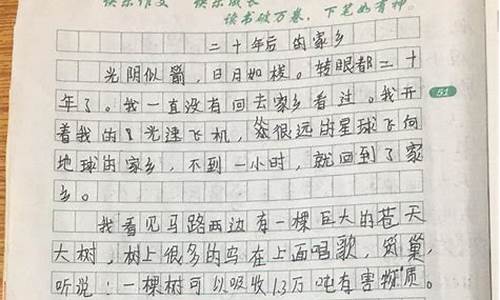 快乐作文 快乐成长
读书破万卷，下笔如有神。
二十年后的家乡
光阴似箭，日月如梭。转眼都二十
年了。我一直没有回去家乡看过。我开
着我的光速飞机，从很远的星球飞向
地球的家乡，不到一小时，就回到了家
乡。
51
我看见马路两边有一棵巨大的苍天
大树，树上很多的鸟在上面唱歌，筑巢，
听说：一棵树可以吸收13万吨有害物质。